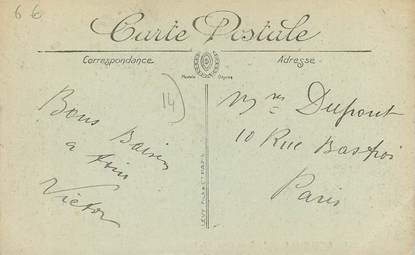 66
Carte Postale
Correspondance
Adresse
14
Bons Baisers
a tous
Victor
Dupont
10 Rue Basfroi
Paris